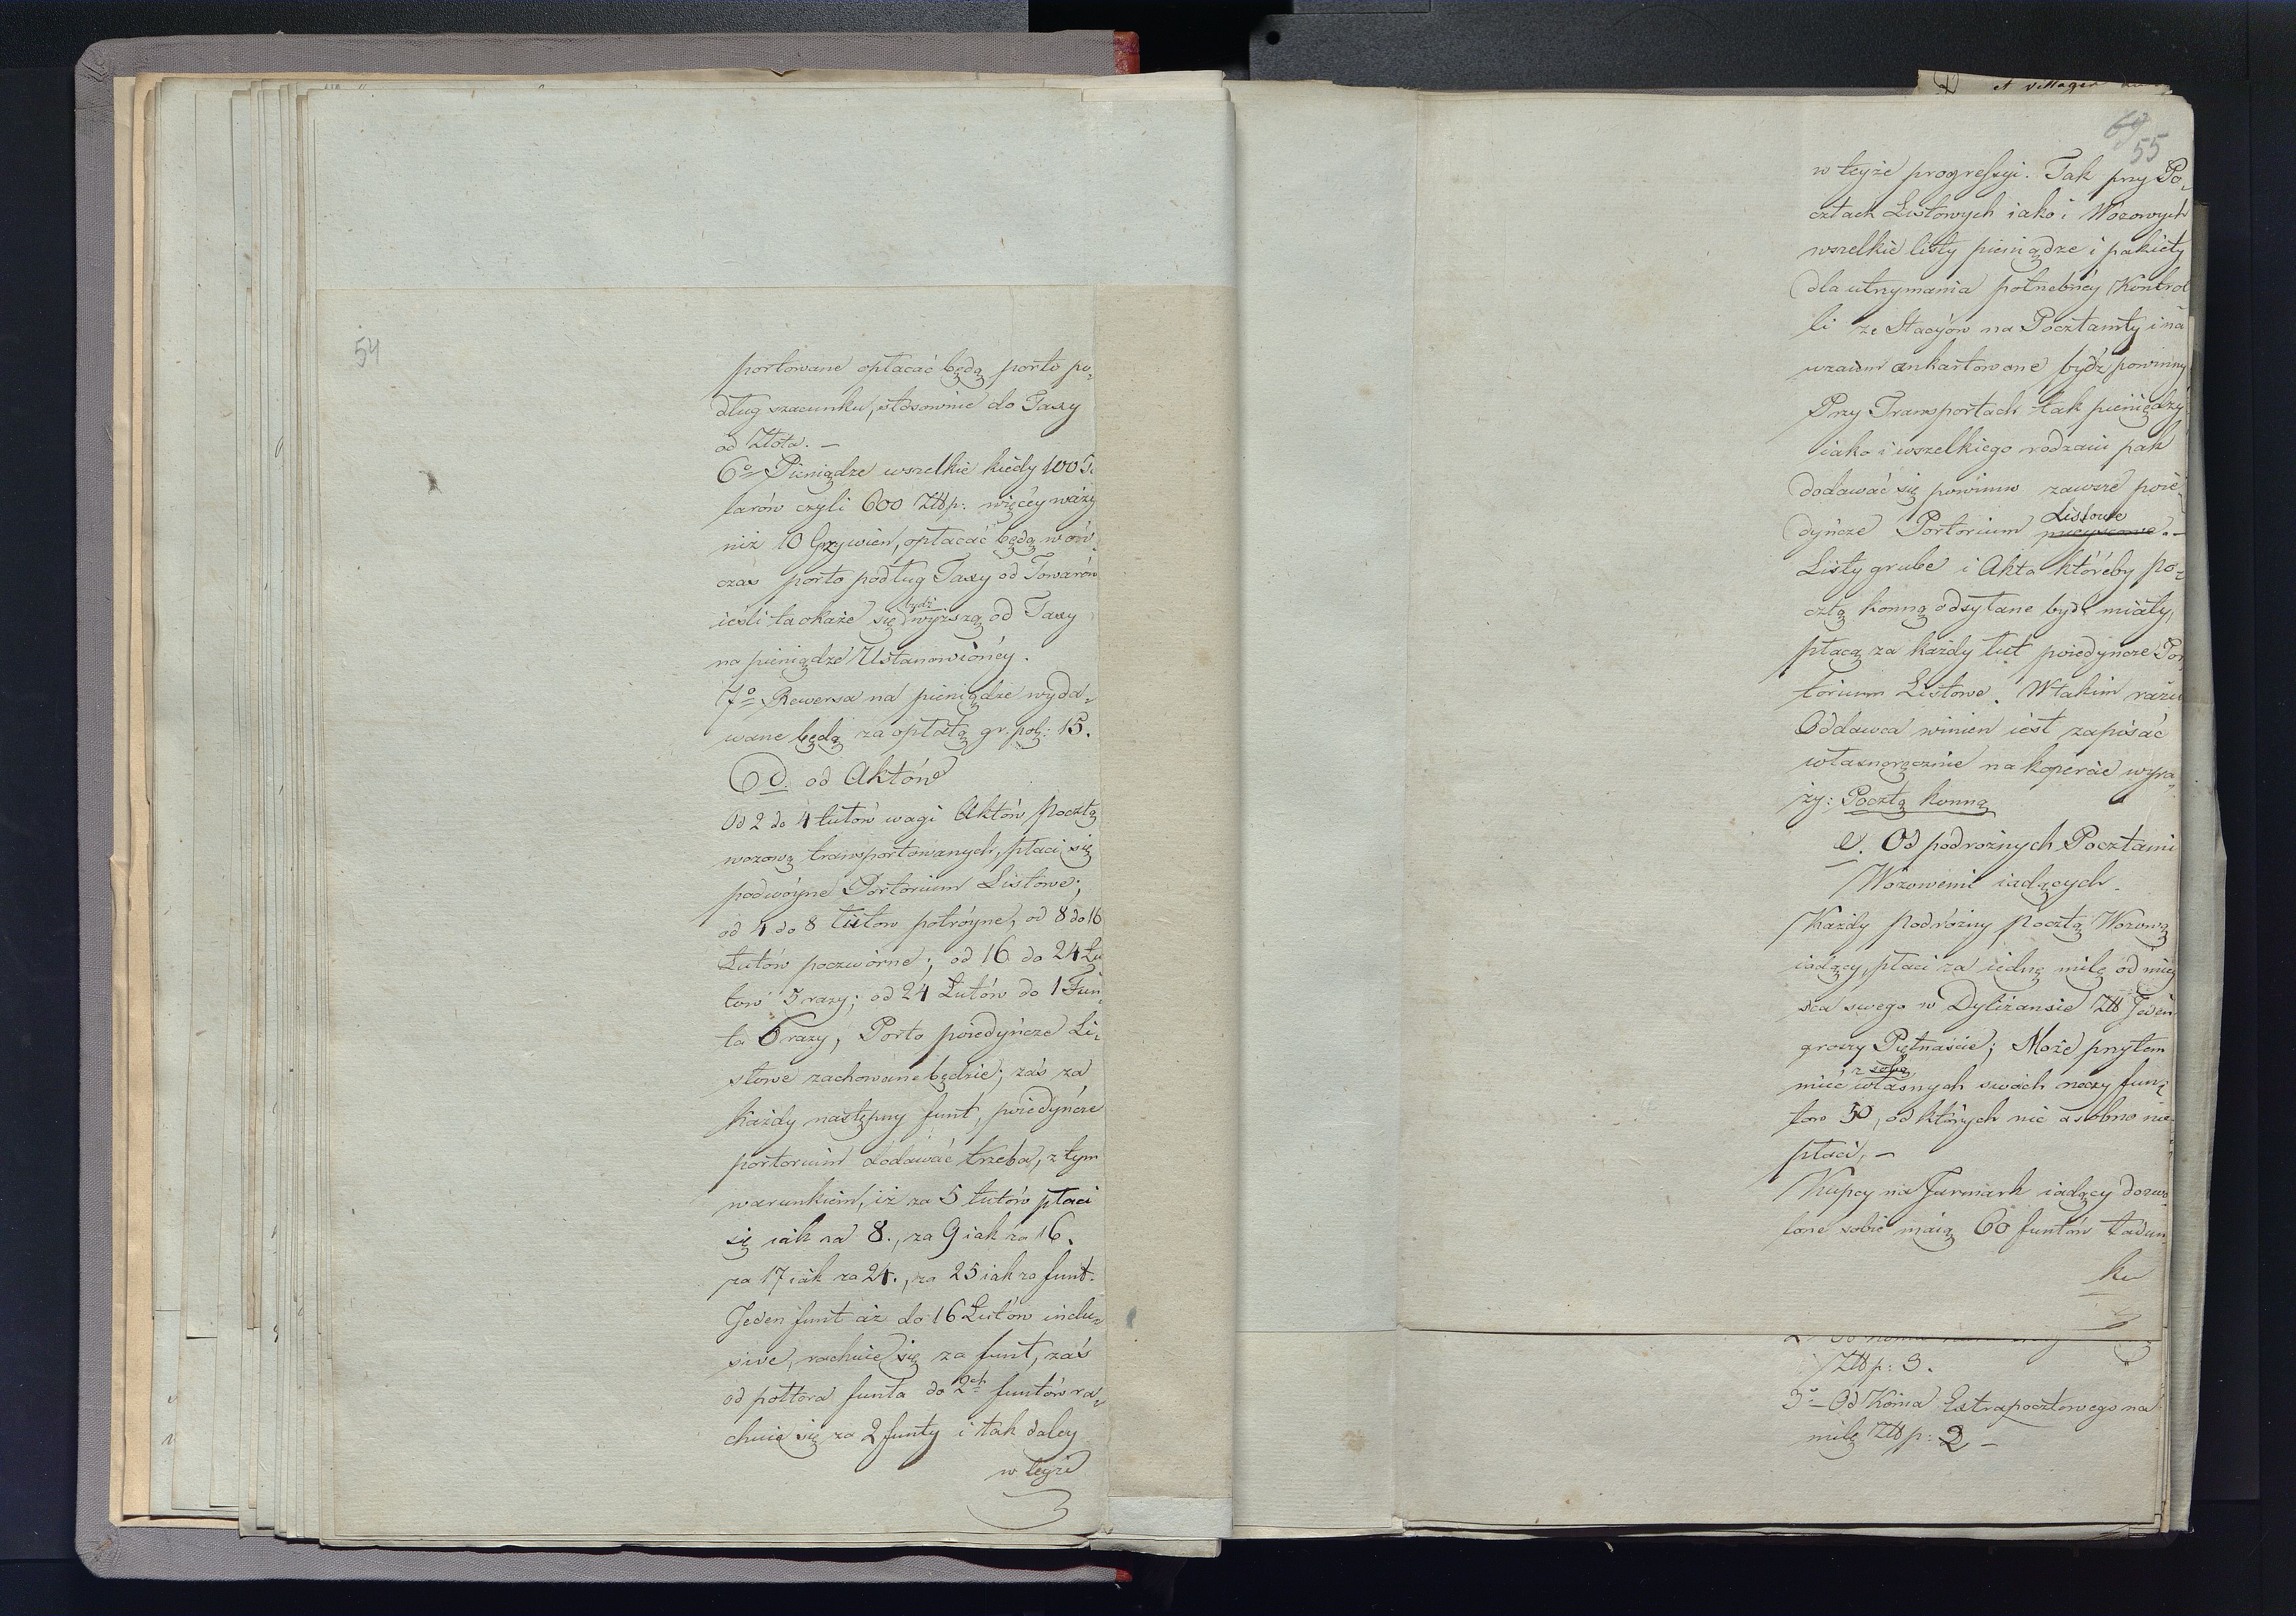 54
portowane opłacać będą porto po-
dług szacunku, stosownie do Taxy
od Złota. –
6o Pieniądze wszelkie kiedy 100 Ta
larów czyli 600 Złłp: więcéy waży
niż 10 Grzywien, opłacać będą wów-
czas porto podług Taxy od Towarów
ieśli ta okaże się bydź wyższą od Taxy
na pieniądze Ustanowionéy.
7o Rewersa na pieniądze wyda-
wane będą za opłatą gr. pol: 15.
d. od Aktów
Od 2 do 4 łutów wagi Aktów Pocztą
wozową transportowanych, płaci się
podwóyne Portorium Listowe;
od 4 do 8 łutów potróyne, od 8 do 16
Łutów poczwórne; od 16 do 24 Łu
tów 5 razy; od 24 Łutów do 1 Fun-
ta 6 razy, Porto poiedyńcze Li-
stowe zachowane będzie; zaś za
każdy następny funt, poiedyńcze
portorium dodawać trzeba, z tym
warunkiem, iż za 5 łutów płaci
się iak za 8., za 9 iak za 16.
za 17 iak za 24., za 25 iak za funt.
Jeden funt aż do 16 Łutów inclu-
sive, rachuie się za funt, zaś
od półtora funta do 2ch funtów ra-
chuie się za 2 funty i tak daley
w teyże
et villages
69
55
w teyże progressyi. Tak przy Po-
cztach Listowych iako i Wozowych
wszelkie listy pieniądze i pakiety
dla utrzymania potrzebnéy Kontrol
li ze Stacyów na Pocztamty i na
wzaiem ankartowane bydź powinny
Przy Transportach tak pieniędzy
iako i wszelkiego rodzaiu pak
dodawać się powinno zawsze poie-
dyńcze Portorium Listowe. –
Listy grube i Akta któreby po-
cztą konną odsyłane bydź miały,
płacą za każdy łut poiedyncze Por
torium Listowe. W takim razie
Oddawca winien iest zapisać
własnoręcznie na kopercie wyra-
zy: Pocztą konną
e. Od podrożnych Pocztami
Wozowemi iadących.
Każdy Podróżny Pocztą Wozową
iadący, płaci za iednę milę od miey
sca swego w Dyliżansie Złł Jeden
groszy Piętnaście; Może przytem
mieć z sobą własnych swoich rzeczy fun-
tów 50, od których nic osobno nie
płaci, –
Kupcy na Jarmark iadący dozwo
lone sobie maią 60 funtów ładun-
ku
Złłp: 3.
3o Od Konia Estrapocztowego na
milę Złłp: 2 –